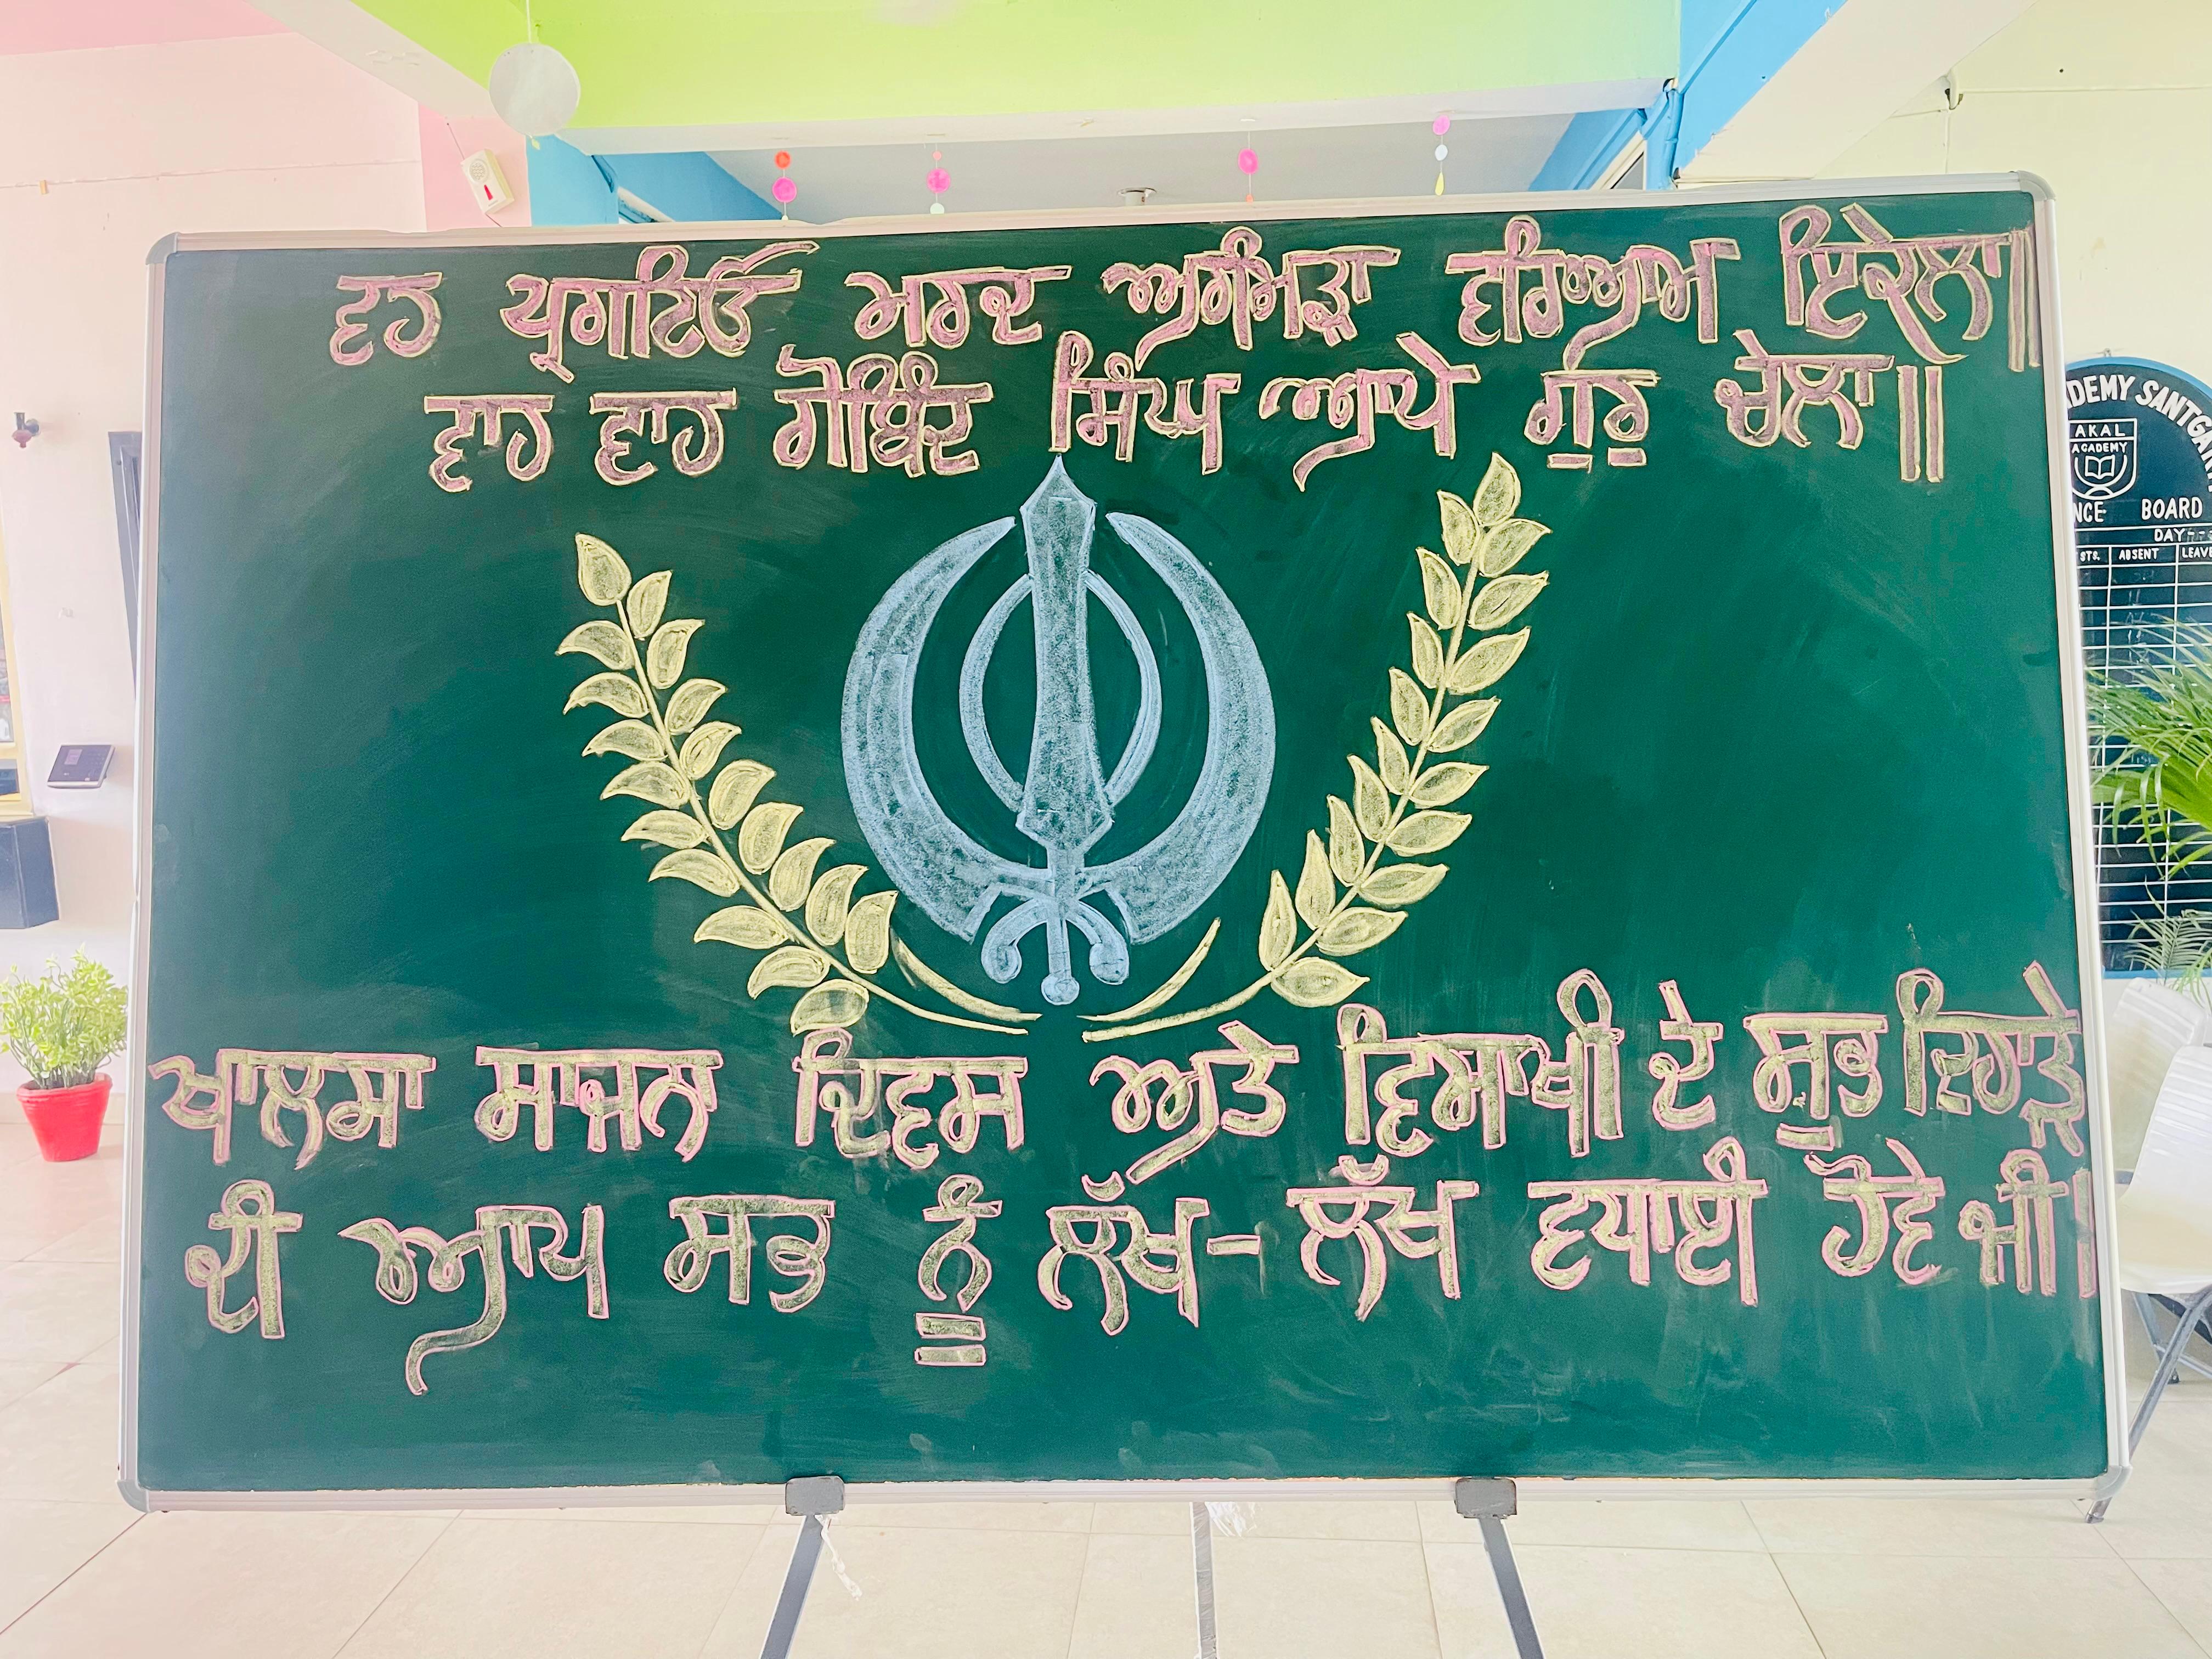 ਵਹ ਪ੍ਰਗਟਿਓ ਮਰਦ ਅਗੰਮੜਾ ਵਰਿਆਮ ਇਕੇਲਾ॥
ਵਾਹ ਵਾਹ ਗੋਬਿੰਦ ਸਿੰਘ ਆਪੇ ਗੁਰੁ ਚੇਲਾ॥
ਖਾਲਸਾ ਸਾਜਨਾ ਦਿਵਸ ਅਤੇ ਵਿਸਾਖੀ ਦੇ ਸ਼ੁਭ ਦਿਹਾੜੇ
ਦੀ ਆਪ ਸਭ ਨੂੰ ਲੱਖ-ਲੱਖ ਵਧਾਈ ਹੋਵੇ ਜੀ।
AKAL
ACADEMY
BOARD
DAY
STS. ABSENT